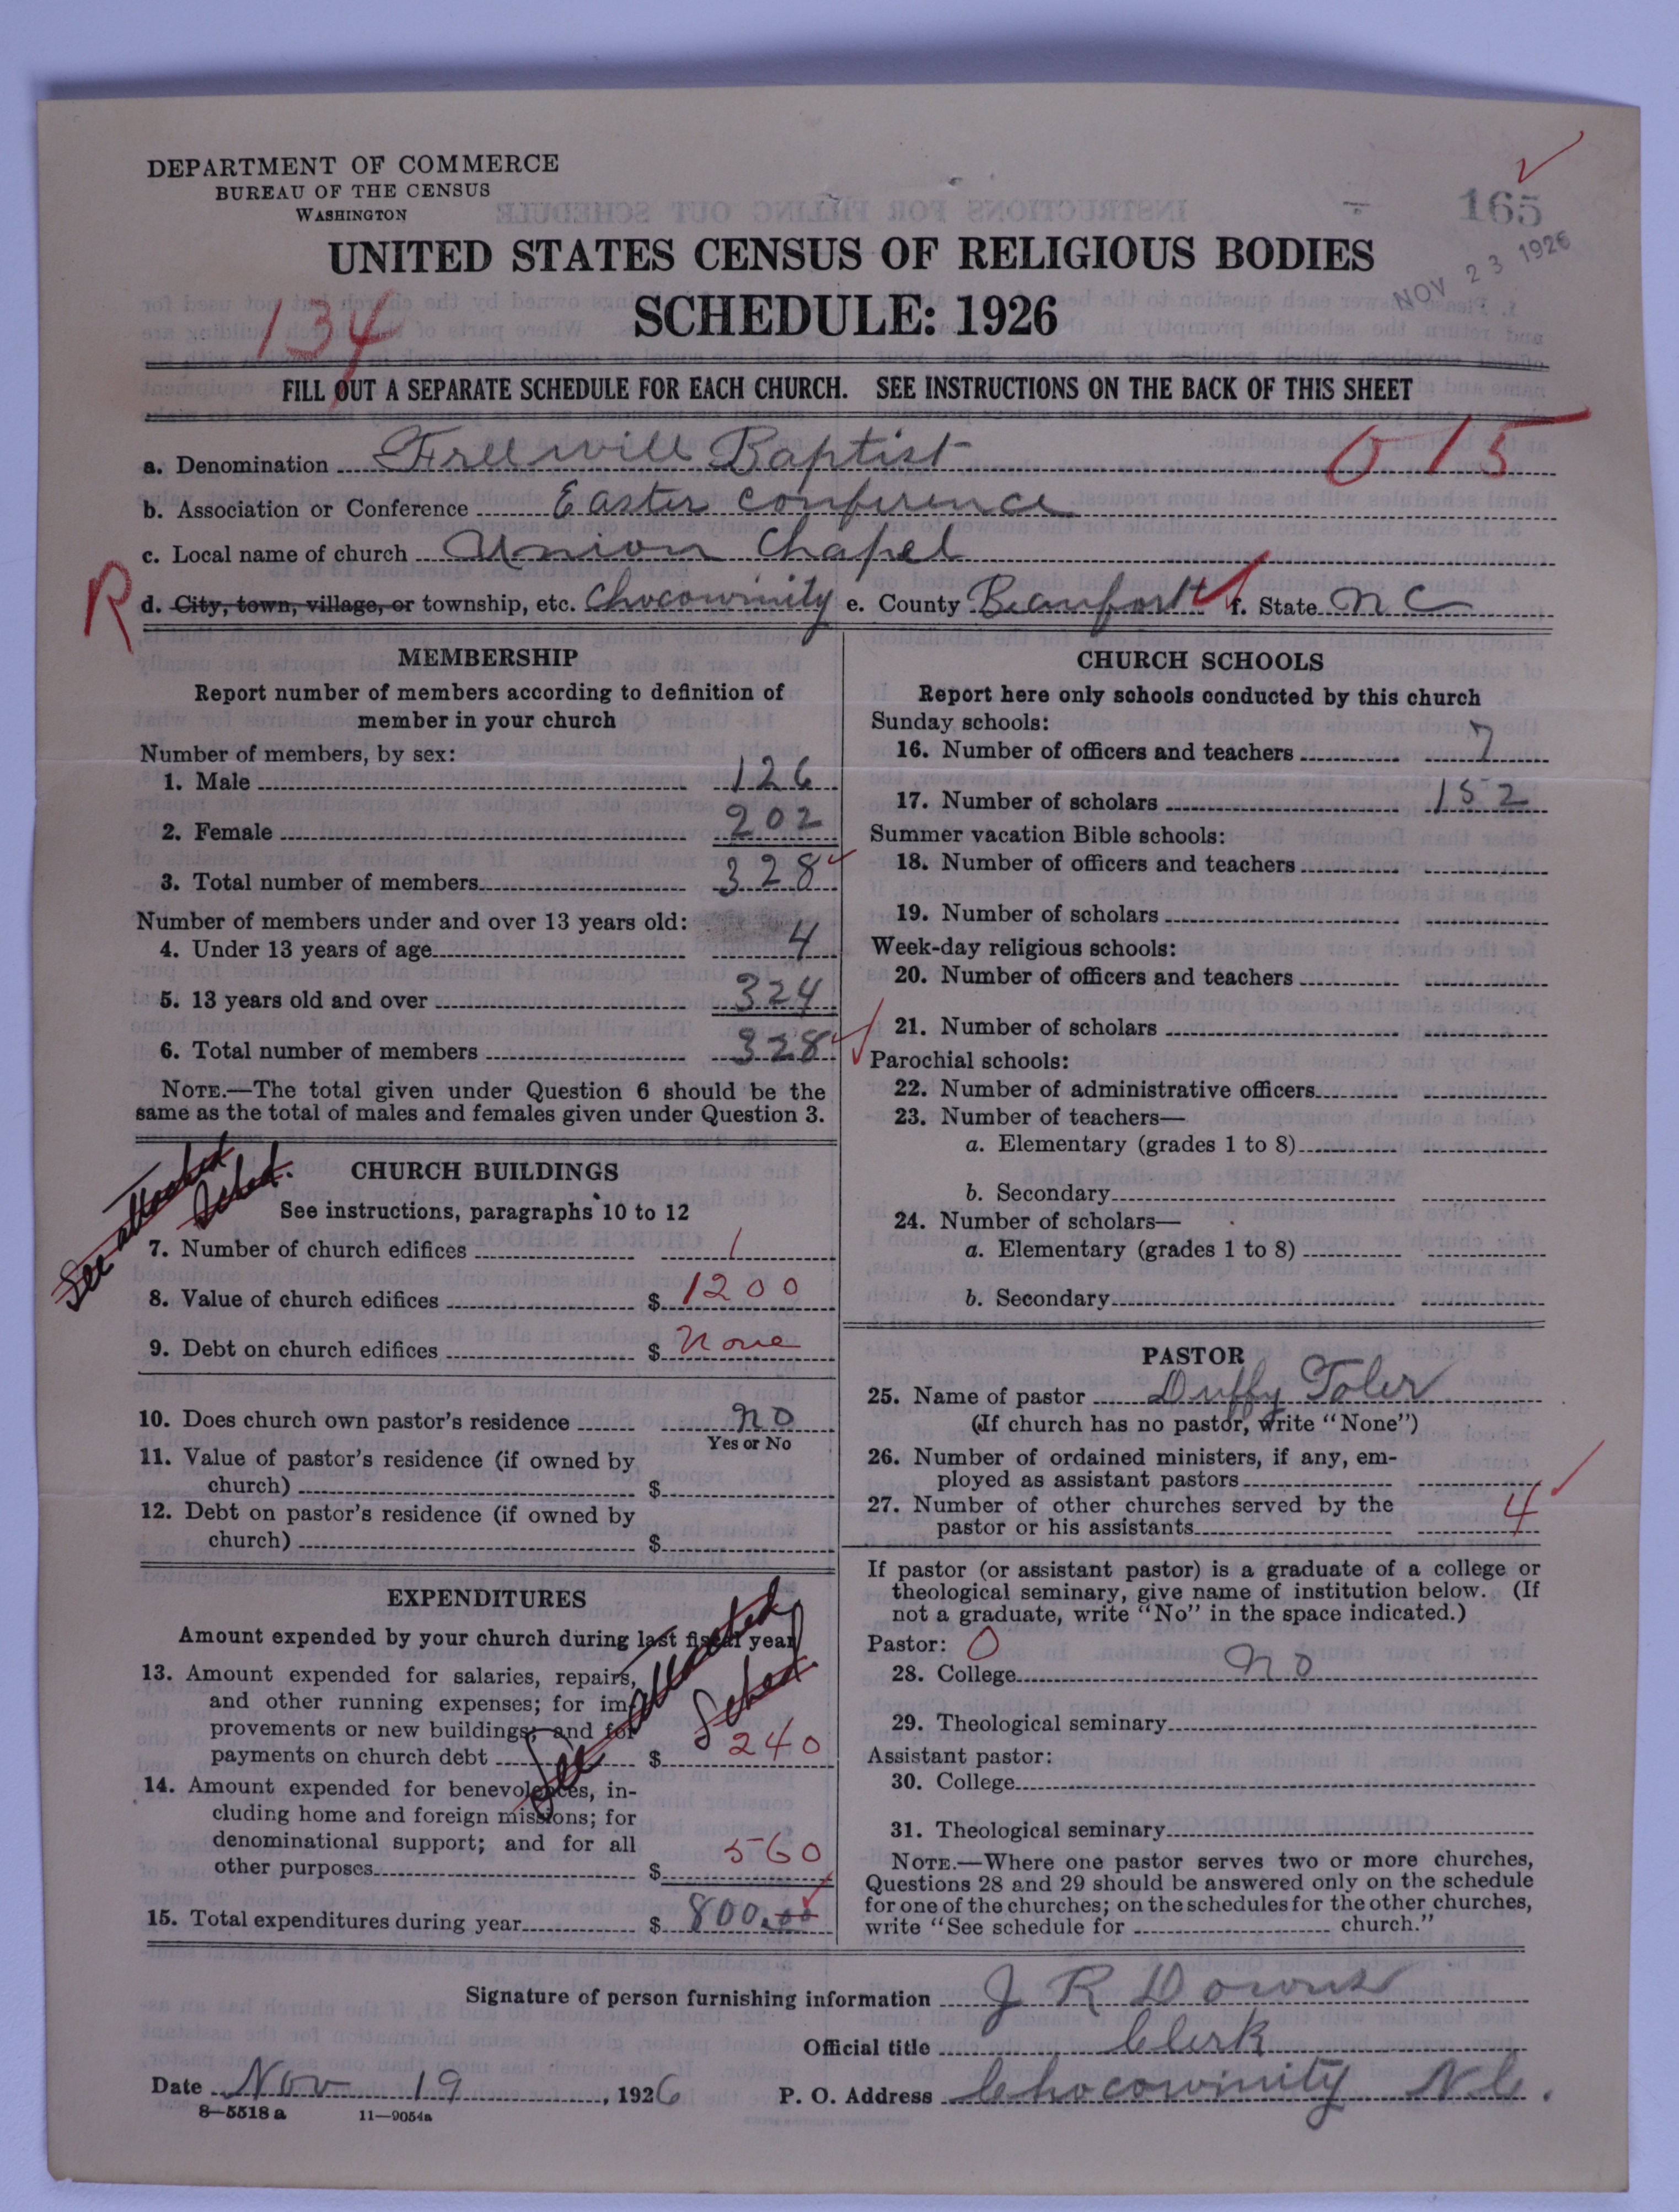 DEPARTMENT OF COMMERCE
BUREAU OF THE CENSUS
WASHINGTON
165
NOV 23 1926
UNITED STATES CENSUS OF RELIGIOUS BODIES
SCHEDULE: 1926
134
FILL OUT A SEPARATE SCHEDULE FOR EACH CHURCH. SEE INSTRUCTIONS ON THE BACK OF THIS SHEET
a. Denomination Freewill Baptist 0 15
b. Association or Conference Easter Conference
c. Local name of church Union Chapel
R d. City, town, village, or township, etc. Chocowinity e. County Beaufort f. State N C
MEMBERSHIP
Report number of members according to definition of
member in your church
Number of members, by sex:
1. Male 126
2. Female 202
3. Total number of members 328
Number of members under and over 13 years old:
4. Under 13 years of age 4
5. 13 years old and over 324
6. Total number of members 328
NOTE.—The total given under Question 6 should be the
same as the total of males and females given under Question 3.
See attached
Sched.
CHURCH BUILDINGS
See instructions, paragraphs 10 to 12
7. Number of church edifices 1
8. Value of church edifices $ 1200
9. Debt on church edifices $ None
10. Does church own pastor's residence no
Yes or No
11. Value of pastor's residence (if owned by
church) $
12. Debt on pastor's residence (if owned by
church) $
EXPENDITURES
Amount expended by your church during last fiscal year
See attached
Sched
13. Amount expended for salaries, repairs,
and other running expenses; for im-
provements or new buildings; and for
payments on church debt $ 240
14. Amount expended for benevolences, in-
cluding home and foreign missions; for
denominational support; and for all
other purposes $ 560
15. Total expenditures during year $ 800.00
CHURCH SCHOOLS
Report here only schools conducted by this church
Sunday schools:
16. Number of officers and teachers 7
17. Number of scholars 152
Summer vacation Bible schools:
18. Number of officers and teachers
19. Number of scholars
Week-day religious schools:
20. Number of officers and teachers
21. Number of scholars
Parochial schools:
22. Number of administrative officers
23. Number of teachers—
a. Elementary (grades 1 to 8)
b. Secondary
24. Number of scholars—
a. Elementary (grades 1 to 8)
b. Secondary
PASTOR
25. Name of pastor Duffy Toler
(If church has no pastor, write "None")
26. Number of ordained ministers, if any, em-
ployed as assistant pastors
27. Number of other churches served by the
pastor or his assistants 4
If pastor (or assistant pastor) is a graduate of a college or
theological seminary, give name of institution below. (If
not a graduate, write "No" in the space indicated.)
Pastor: 0
28. College no
29. Theological seminary
Assistant pastor:
30. College
31. Theological seminary
NOTE.—Where one pastor serves two or more churches,
Questions 28 and 29 should be answered only on the schedule
for one of the churches; on the schedules for the other churches,
write "See schedule for church."
Signature of person furnishing information J R Downs
Official title Clerk
Date Nov 19, 1926 P. O. Address Chocowinity N.C.
8—5518 a 11—9054a